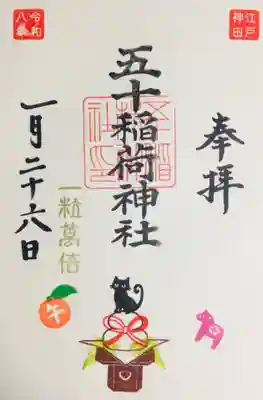 江戸
神田
奉拝
五十稲荷神社
一粒萬倍
一月二十六日
令和
八
午